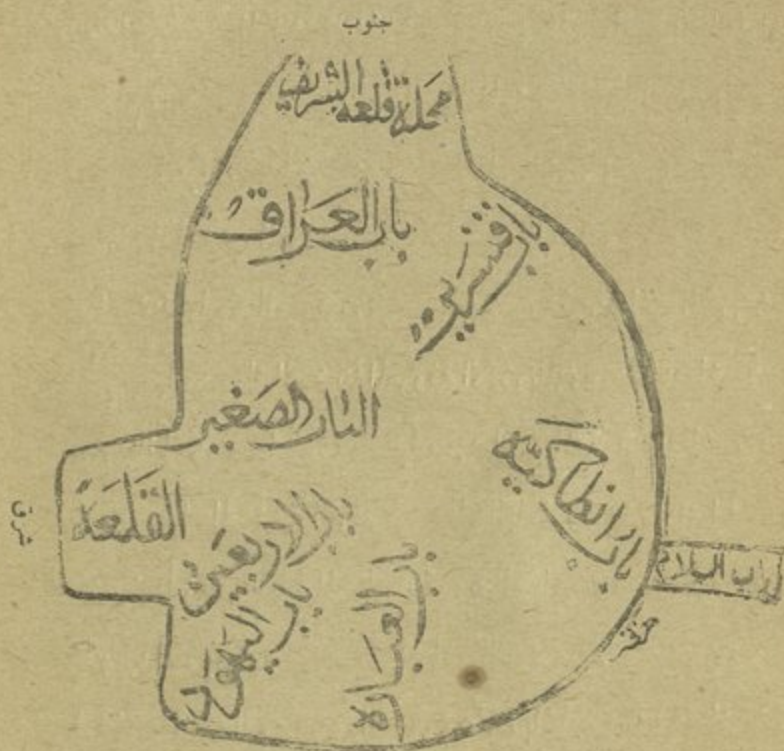 جنوب
محلة قلعة الشريف
باب العراق
باب قنسرين
الباب الصغير
باب انطاكية
القلعة
شرق
باب الاربعين
باب اليهود
باب العبارة
باب السلام